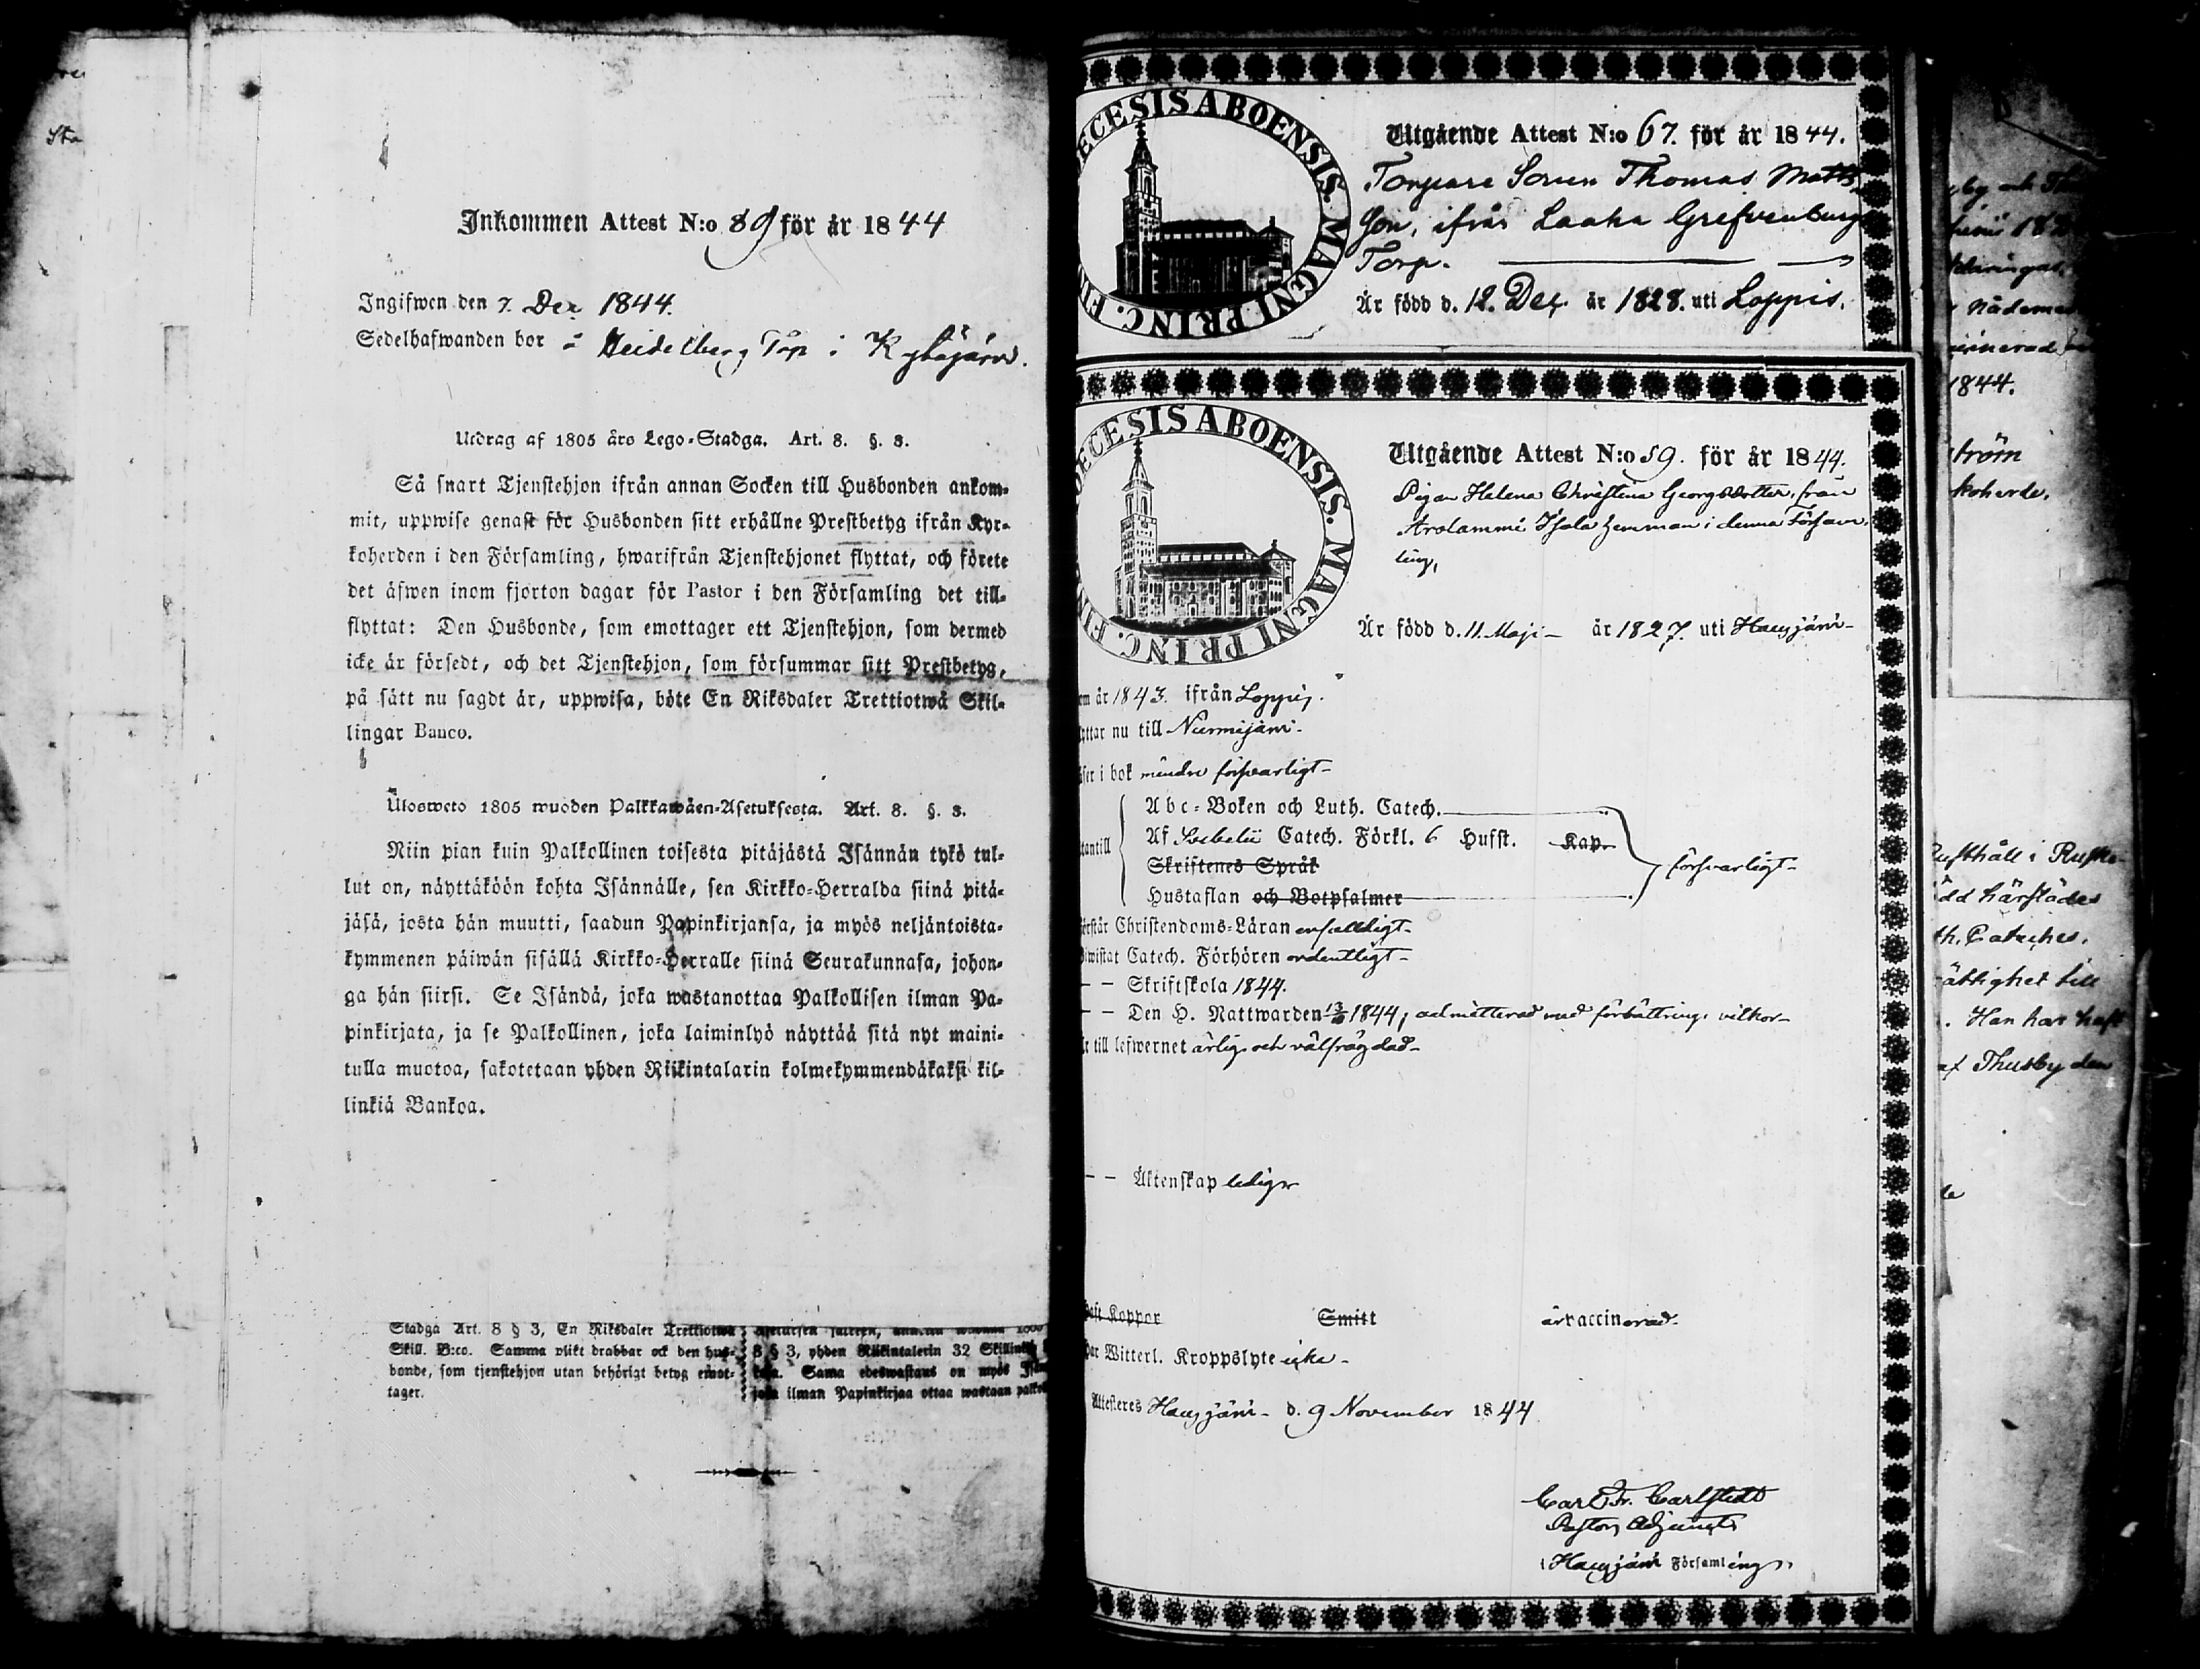 Inkommen Attest N:o 89 för år 1844
Ingifwen den 7. Dec 1844.
Sedelhafwanden bor å Heidelberg Tåp i Kytäjärvi.
Utdrag af 1805 års Lego-Stadga. Art. 8. §. 3.
Så snart Tjenstehjon ifrån annan Socken till Husbonden ankom-
mit, uppwise genast för Husbonden sitt erhållne Prestbetyg ifrån Kyr-
koherden i den Församling, hwarifrån Tjenstehjonet flyttat, och förete
det äfwen inom fjorton dagar för Pastor i den Församling det till-
flyttat: Den Husbonde, som emottager ett Tjenstehjon, som dermed
icke är försedt, och det Tjenstehjon, som försummar sitt Prestbetyg,
på sätt nu sagdt är, uppwisa, böte En Riksdaler Trettiotwå Skil-
lingar Banco.
Ulosweto 1805 wuoden Palkkawäen-Asetuksesta. Art. 8. §. 3.
Niin pian kuin Palkollinen toisesta pitäjästä Isännän tykö tul-
lut on, näyttäköön kohta Isännälle, sen Kirkko-Herralda siinä pitä-
jäsä, josta hän muutti, saadun Papinkirjansa, ja myös neljäntoista-
kymmenen päiwän sisällä Kirkko-Herralle siinä Seurakunnasa, johon-
ga hän siirsi. Se Isändä, joka wastanottaa Palkollisen ilman Pa-
pinkirjata, ja se Palkollinen, joka laiminlyö näyttää sitä nyt maini-
tulla muotoa, sakotetaan yhden Riikintalarin kolmekymmendäkaksi kil-
linkiä Bankoa.
Stadga Art. 8 § 3, En Riksdaler Trettiotwå
Skill. B:co. Samma plikt drabbar ock den hus-
bonde, som tjenstehjon utan behörigt betyg emot-
tager.
8 § 3, yhden Riikintalerin 32 Skillinkiä
Sama edeswastaus on myös
joka ilman Papinkirjaa ottaa wastaan
DIECESIS ABOENSIS. MAGNI PRINC. FIN
Utgående Attest N:o 67. för år 1844.
Torpare Sonen Thomas Matts
Son, ifrån Laaka Grefvenburg
Torp.
Är född d. 12. Dec. år 1828. uti Loppis.
DIECESIS ABOENSIS. MAGNI PRINC. FIN
Utgående Attest N:o 59. för år 1844.
Pigan Helena Christina Georgsdotter, från
Arolammi Isala hemman i denna Försam-
ling,
Är född d. 11. Maji – år 1827. uti Hausjärvi –
om år 1843. ifrån Loppis.
yttar nu till Nurmijärvi.
äser i bok mindre försvarligt –
utantill
Abc-Boken och Luth. Catech.
Af Svebelii Catech. Förkl. 6 Hufst. Kap.
Skriftenes Språk
Hustaflan och Botpsalmer
försvarligt –
örstår Christendoms-Läran enfaldigt –
iwistat Catech. Förhören ordentligt –
– – Skriftskola 1844.
– – Den H. Nattwarden 1844, admitterad med förbättrings vilkor –
r till lefwernet ärlig och välfrägdad –
– – Äktenskap ledig
aft Koppor Smitt är vaccinerad.
ar Witterl. Kroppslyte icke –
Attesteres Hausjärvi – d. 9 November 1844
Carl Fr. Carlstedt
Pastors Adjunct
i Hausjärvi Församling.
1844.
ström
koherde.
ufthåll i Ruske
ödd härstädes
th. Catechis.
ättighet till
. Han har haft
af Thusby den